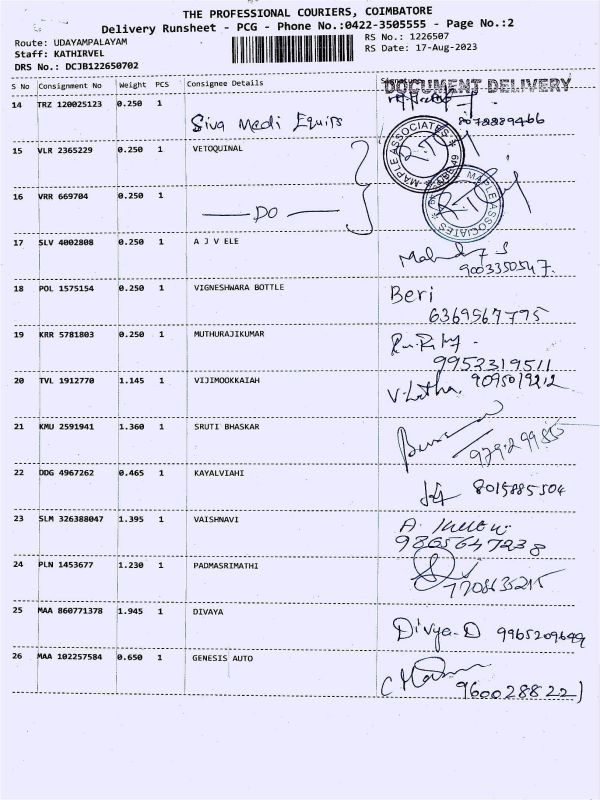 THE PROFESSIONAL COURIERS, COIMBATORE
Delivery Runsheet - PCG - Phone No.:0422-3505555 - Page No.:2
Route: UDAYAMPALAYAM
RS No.: 1226507
Staff: KATHIRVEL
RS Date: 17-Aug-2023
DRS No.: DCJB122650702
S No Consignment No Weight PCS Consignee Details Signature
DOCUMENT DELIVERY
14 TRZ 120025123 0.250 1 Siva Medi Equips 8078889466
15 VLR 2365229 0.250 1 VETOQUINAL
MAPLE ASSOCIATES
16 VRR 669704 0.250 1 DO
MAPLE ASSOCIATES
17 SLV 4002808 0.250 1 A J V ELE
9003350547.
18 POL 1575154 0.250 1 VIGNESHWARA BOTTLE Beri
6369567775
19 KRR 5781803 0.250 1 MUTHURAJIKUMAR
9952319511
20 TVL 1912770 1.145 1 VIJIMOOKKAIAH V.Latha 9095019212
21 KMU 2591941 1.360 1 SRUTI BHASKAR
22 DDG 4967262 0.465 1 KAYALVIAHI 8015885504
23 SLM 326388047 1.395 1 VAISHNAVI A.
9865647238
24 PLN 1453677 1.230 1 PADMASRIMATHI
7708635215
25 MAA 860771378 1.945 1 DIVAYA Divya-D 9965209649
26 MAA 102257584 0.650 1 GENESIS AUTO
9600288221